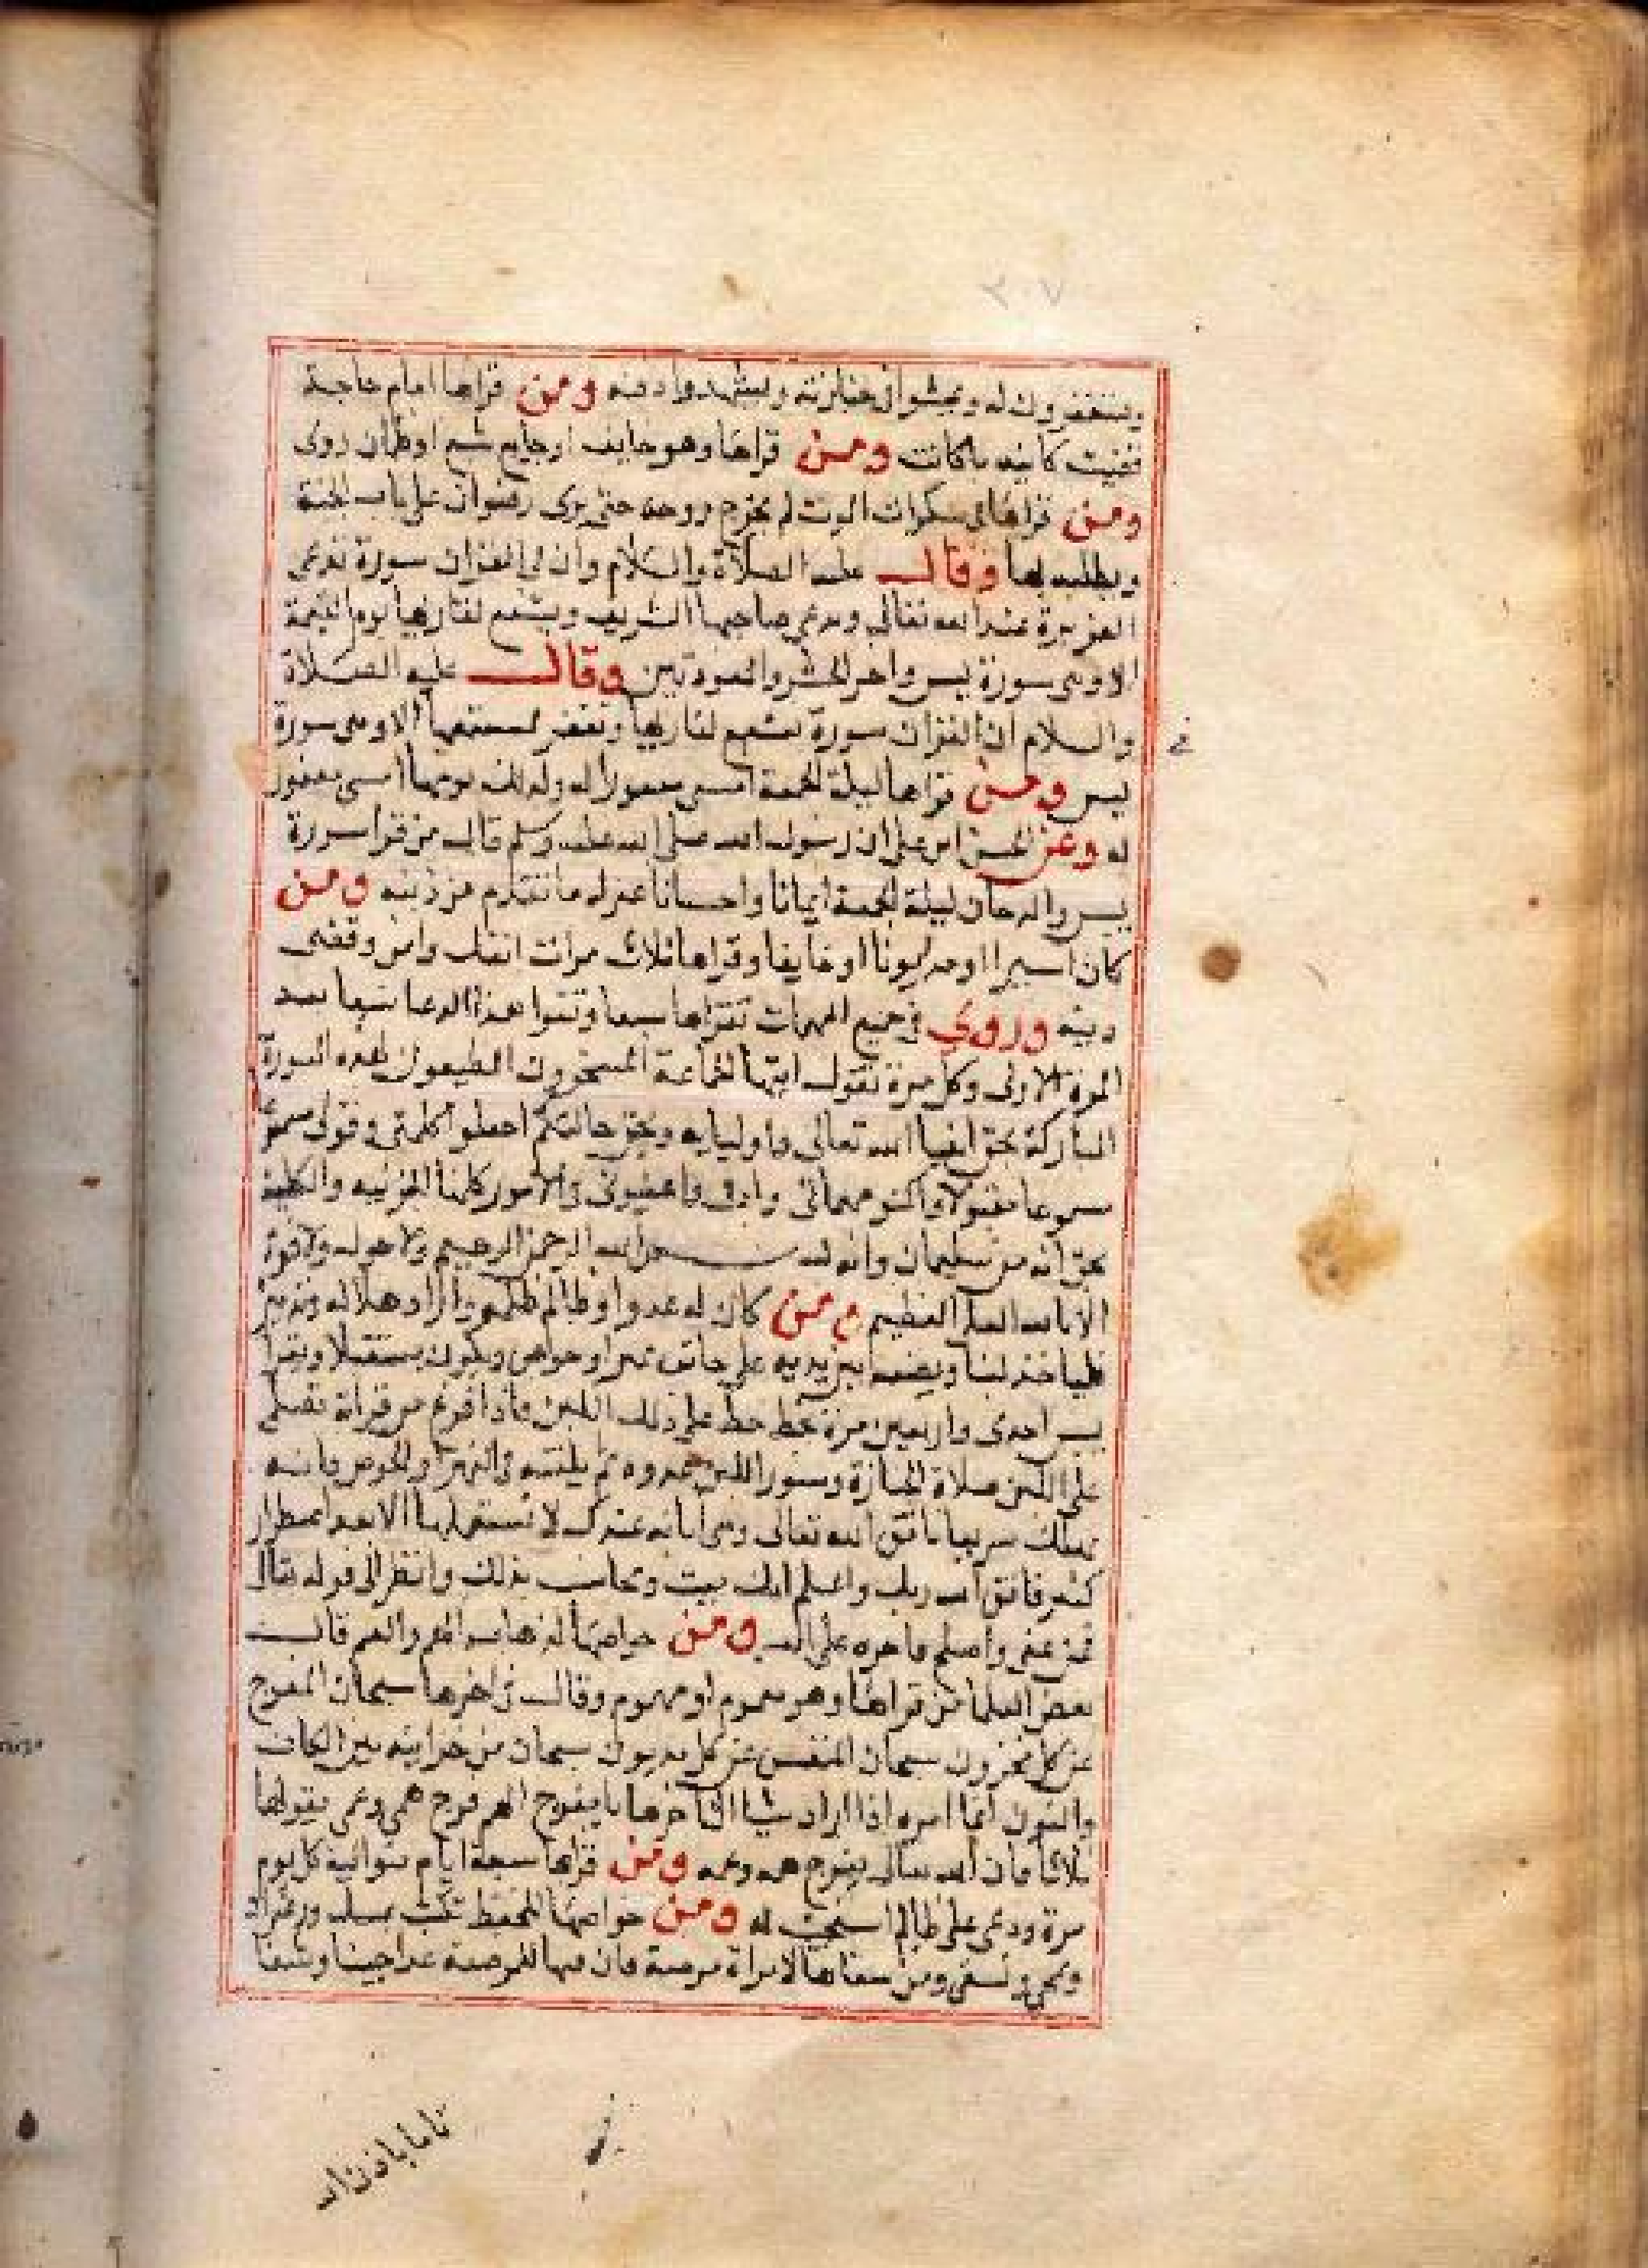 ٣٠٧
ويستغفرون له ويمشوا في جنازته ويشهدوا دفنه ومن قراها امام حاجة
قضيت كاينه ما كانت ومن قراها وهو خايف او جايع شبع او ظمان روى
ومن قراها في سكرات الموت لم يخرج روحه حتى يرى رضوان على باب الجنة
ويطلبه بها وقال عليه الصلاة والسلام وان في القران سورة تدعى
العزيزة عند الله تعالى ويدعى صاحبها الشريف ويشفع لقاريها يوم القيمة
الا وهي سورة يس واخر الحشر والمعوذتين وقال عليه الصلاة
والسلام ان القران سورة تشفع لقاريها وتغفر لمستمعها الا وهي سورة
في
يس ومن قراها ليلة الجمعة امسى مغفورا له وكذلك يومها امسى مغفور
له وعن الحسن ابن علي ان رسول الله صلى الله عليه وسلم قال من قرا سورة
يس والدخان ليلة الجمعة ايمانا واحسانا غفر له ما تقدم من ذنبه ومن
كان اسيرا او مديونا او خايفا وقراها ثلاث مرات انفك وامن وقضى
دينه وروي في جميع المهمات تقراها سبعا وتقرا هذا الدعا سبعا بعد
المرة الاولى وكل مرة تقول ايتها الجماعة المسخرون المطيعون لهذه السورة
المباركة بحق انبيا الله تعالى واوليايه وبحق خالقكم اجعلوا كلمتي وقولي
مسموعا مقبولا واكفو مهماتي واعينوني في الامور كلها الجزئيه والكليه
بحق انه من سليمان وانه بسم الله الرحمن الرحيم ولا حول ولا قوة
الا بالله العلي العظيم ومن كان له عدوا وظالم ظلمه واراد هلاكه
فلياخذ لبنا ويضعه بين يديه على جانب نهر او حوض ويكون مستقبلا ويقرا
يس احدى واربعين مرة يخط خط على ذلك اللبن فاذا فرغ من قراته تصلي
على اللبن صلاة الجنازة وينوي اللبن عدوه ثم يلقيه في النهر او الحوض فانه
يهلك سريعا فاتق الله تعالى وهي امانه عندك لا تستعملها الا بعد اضطرار
كثير فاتق الله ربك واعلم انك ميت ومحاسب بذلك وانظر الى قوله تعالى
فمن عفى واصلح فاجره على الله ومن خواصها لذهاب الهم والغم قال
بعض العلما من قراها وهو مغموم او مهموم وقال في اخرها سبحان المفرج
عن كل محزون سبحان المنفس عن كل مديون سبحان من خزاينه بين الكاف
والنون انما امره اذا اراد شيا الى اخرها يا مفرج الهم فرج همي وغمي يقولها
ثلاثا فان الله تعالى يفرج همه وغمه ومن قراها سبعة ايام متوالية كل يوم
مرة ودعى على ظالم استجيب له ومن خواصها للحفظ تكتب بمسك وزعفران
وتمحى وتسقى ومن سقاها لامراة مرضعة فان فيها للمرضعة